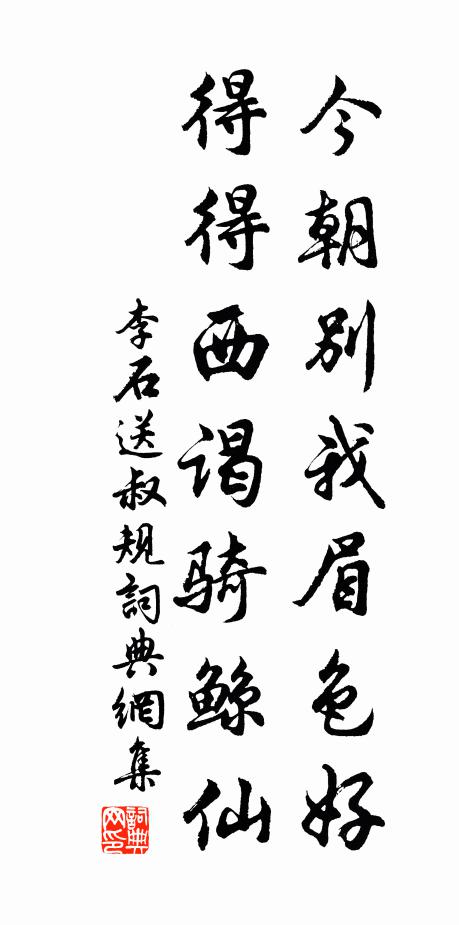 今朝别我眉色好
得得西谒骑鲸仙
李石送叔规詞典網集
詞典网印